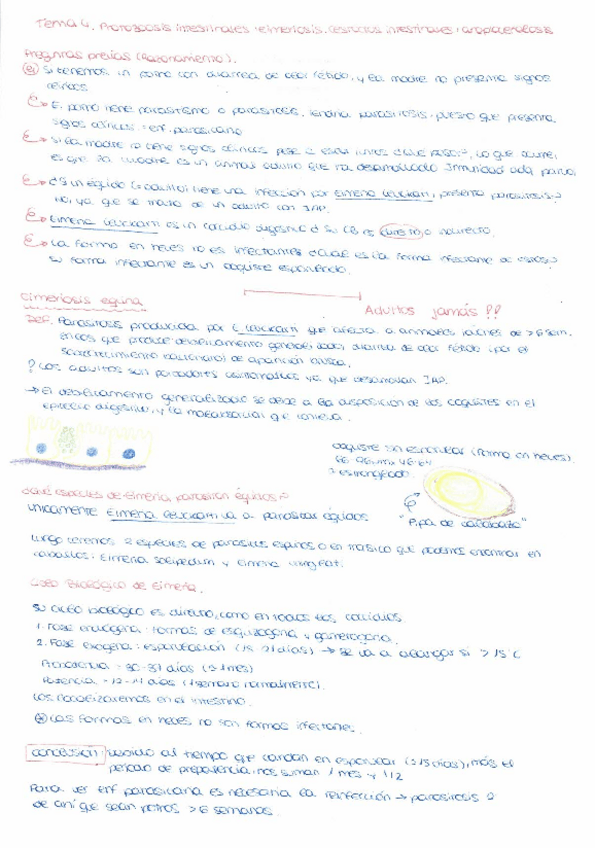 Tema 4. Protozoosis intestinales: eimeriosis. Cestodosis intestinales: anoplocefalosis
Preguntas previas (Razonamiento).
Si tenemos un potro con diarrea de olor fétido, y la madre no presenta signos
clínicos
El potro tiene parasitismo o parasitosis, tendría parasitosis, puesto que presenta
signos clínicos = enf. parasitaria
Si la madre no tiene signos clínicos pese a estar juntos ¿qué pasa?, Lo que ocurre
es que la madre es un animal adulto que ha desarrollado Inmunidad
¿Si un équido (caballo) tiene una infección por Eimeria leuckarti, presenta parasitosis?
No, ya que se trata de un adulto con IAP.
Eimeria leuckarti es un coccidio digestivo ¿ su CB es directo o indirecto.
La forma en heces no es infectante ¿cuál es la forma infectante
Su forma infectante es un ooquiste esporulado.
Eimeriosis equina
Adultos jamás !!
Def. Parasitosis producida por E. leuckarti que afecta a animales jóvenes de > 6 sem.
en los que produce debilitamiento generalizado, diarrea de olor fétido (por el
de aparición brusca.
? Los adultos son portadores asintomáticos ya que desarrollan IAP.
→ El debilitamiento generalizado se debe a la disposición de los ooquistes en el
epitelio digestivo, y la malabsorción que conlleva.
ooquiste sin esporular (forma en heces).
estrangulado
¿Qué especies de Eimeria parasitan équidos?
Unicamente Eimeria leuckarti va a parasitar équidos
"Pipa de calabaza"
Luego tenemos 2 especies de parásitos espurios o en tránsito que podemos encontrar en
caballos: Eimeria solipedum y Eimeria uniungulati.
Ciclo Biológico de Eimeria.
Su ciclo biológico es directo, como en todos los coccidios
1. Fase endógena: formas de esquizogonia y gametogonia.
2. Fase exógena: esporulación (15-21 días) → se va a alargar si > 15°C
Prepatencia = 30-37 días (>1 mes)
Patencia = 12-14 días (1 semana normalmente).
Los localizaremos en el intestino.
Las formas en heces no son formas infectantes.
Conclusión: debido al tiempo que tardan en esporular (>15 días), más el
periodo de prepatencia, nos suman 1 mes y 1/2
Para ver enf. parasitaria es necesaria la reinfección → parasitosis
de ahí que sean potros > 6 semanas.